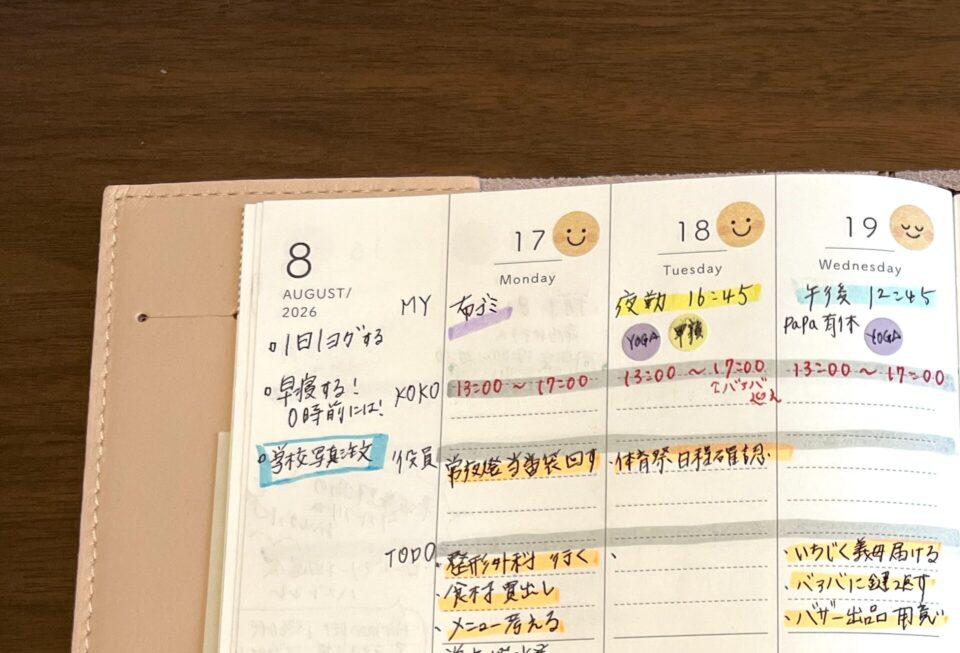 8
AUGUST/
2026
1日1ヨガする
早寝する！
0時前には！
学校写真注文
MY
KOKO
役員
TODO
17
Monday
布ゴミ
13:00 〜 17:00
当番袋回す
・整形外科 行く
・食材買出し
・メニュー考える
18
Tuesday
夜勤 16:45
YOGA
13:00 〜 17:00
↑バァバ
迎え
体育祭日程確認
19
Wednesday
午後 12:45
PaPa有休
YOGA
13:00 〜 17:00
・いちじく義母届ける
・バァバに鍵返す
・バザー出品用意